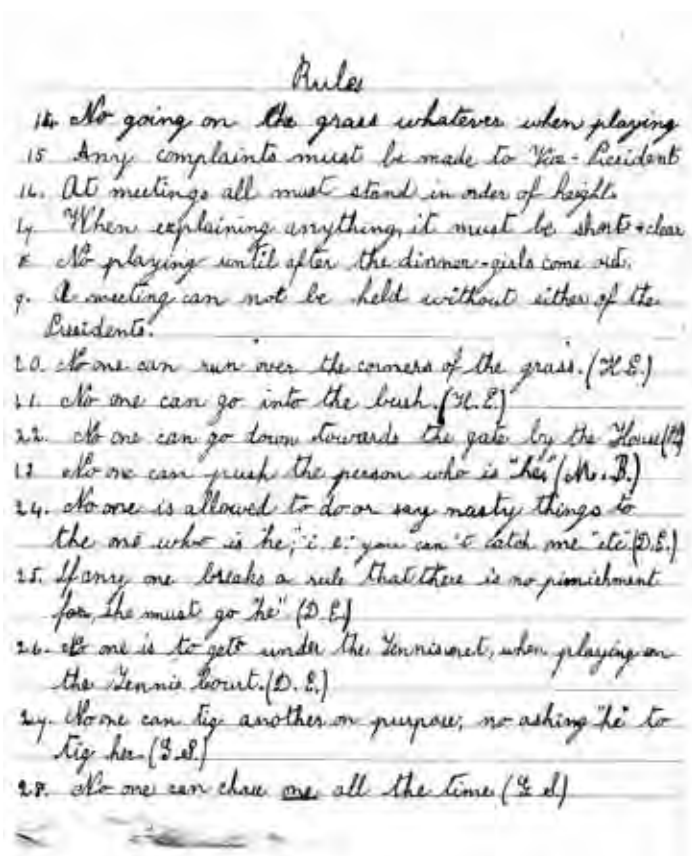 Rules
14. No going on the grass whatever when playing
15 Any complaints must be made to Vice-President
16. At meetings all must stand in order of height.
17 When explaining anything, it must be short + clear
8 No playing until after the dinner-girls come out.
9. A meeting can not be held without either of the
Presidents.
20. No one can run over the corners of the grass. (H.E.)
21. No one can go into the bush. (H.E.)
22. No one can go down towards the gate by the House
23. No one can push the person who is "he" (M.B.)
24. No one is allowed to do or say nasty things to
the one who is "he", i.e. "you can't catch me" etc (D.E.)
25. If any one breaks a rule that there is no punishment
for, she must go "he". (D.E.)
26. No one is to get under the Tennis net, when playing on
the Tennis Court. (D.E.)
27. No one can tig another on purpose, no asking "he" to
tig her. (G.S.)
28. No one can chase one all the time (G.S)